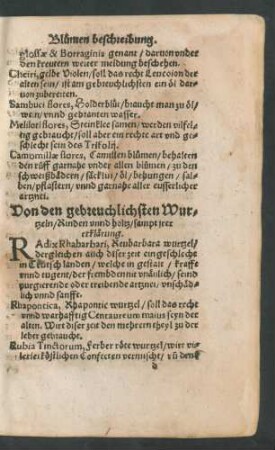 Blůmen beschreibung.
glossæ & Borraginis genant / daruon vnder
den kreutern weiter meldung beschehen.
Cheiri, gelbe Violen / soll das recht Leucoion der
alten sein / ist am gebreuchlichsten ein öl dar
uon zubereiten.
Sambuci flores, Holderblů / braucht man zů öl /
wein / vnnd gebranten wasser.
Meliloti flores, Steinklee samen / werden vilfel
tig gebraucht / soll aber ein rechte art vnd ge
schlecht sein des Trifolij.
Camomillæ flores, Camillen blůmen / behalten
den růff garnahe vnder allen blůmen / zů den
schweißbådern / såcklin / öl / behungen / sal
ben / pflastern / vnnd garnahe aller eusserlicher
artznei.
Von den gebreuchlichsten Wur
tzeln / Rinden vnnd holtz / sampt jrer
erklårung.
RAdix Rhabarbari, Reubarbara wurtzel /
dergleichen auch diser zeit ein geschlecht
in Teutsch landen / welche in gestalt / krafft
vnnd tugent / der frembden nit vnånlich / seind
purgierende oder treibende artznei / vnschåd
lich vnnd sanfft.
Rhapontica, Rhapontic wurtzel / soll das recht
vnnd warhafftig Centaureum maius seyn der
alten. Wirt diser zeit den mehrern theyl zů der
leber gebraucht.
Rubia Tinctorum, Ferber röte wurtzel / wirt vi
lerlei köstlichen Confecten vermischt / vñ den
d